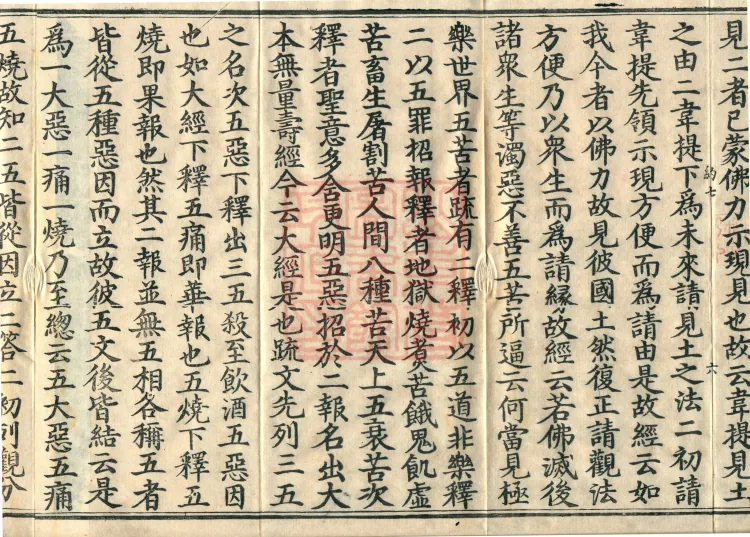 見二者已蒙佛力示現見也故云韋提見土
之由二韋提下爲未來請見土之法二初請
韋提先領示現方便而爲請由是故經云如
我今者以佛力故見彼國土然復正請觀法
方便乃以衆生而爲請縁故經云若佛滅後
諸衆生等濁惡不善五苦所逼云何當見極
樂世界五苦者䟽有二釋初以五道非樂釋
二以五罪招報釋者地獄燒煑苦餓鬼飢虛
苦畜生屠割苦人間八種苦天上五衰苦次
釋者聖意多含更明五惡招於二報名出大
本無量壽經今云大經是也䟽文先列三五
之名次五惡下釋出三五殺至飲酒五惡因
也如大經下釋五痛即華報也五燒下釋五
燒即果報也然其二報並無五相各稱五者
皆從五種惡因而立故彼五文後皆結云是
爲一大惡一痛一燒乃至緫云五大惡五痛
五燒故知二五皆從因立二答二初列觀分
六